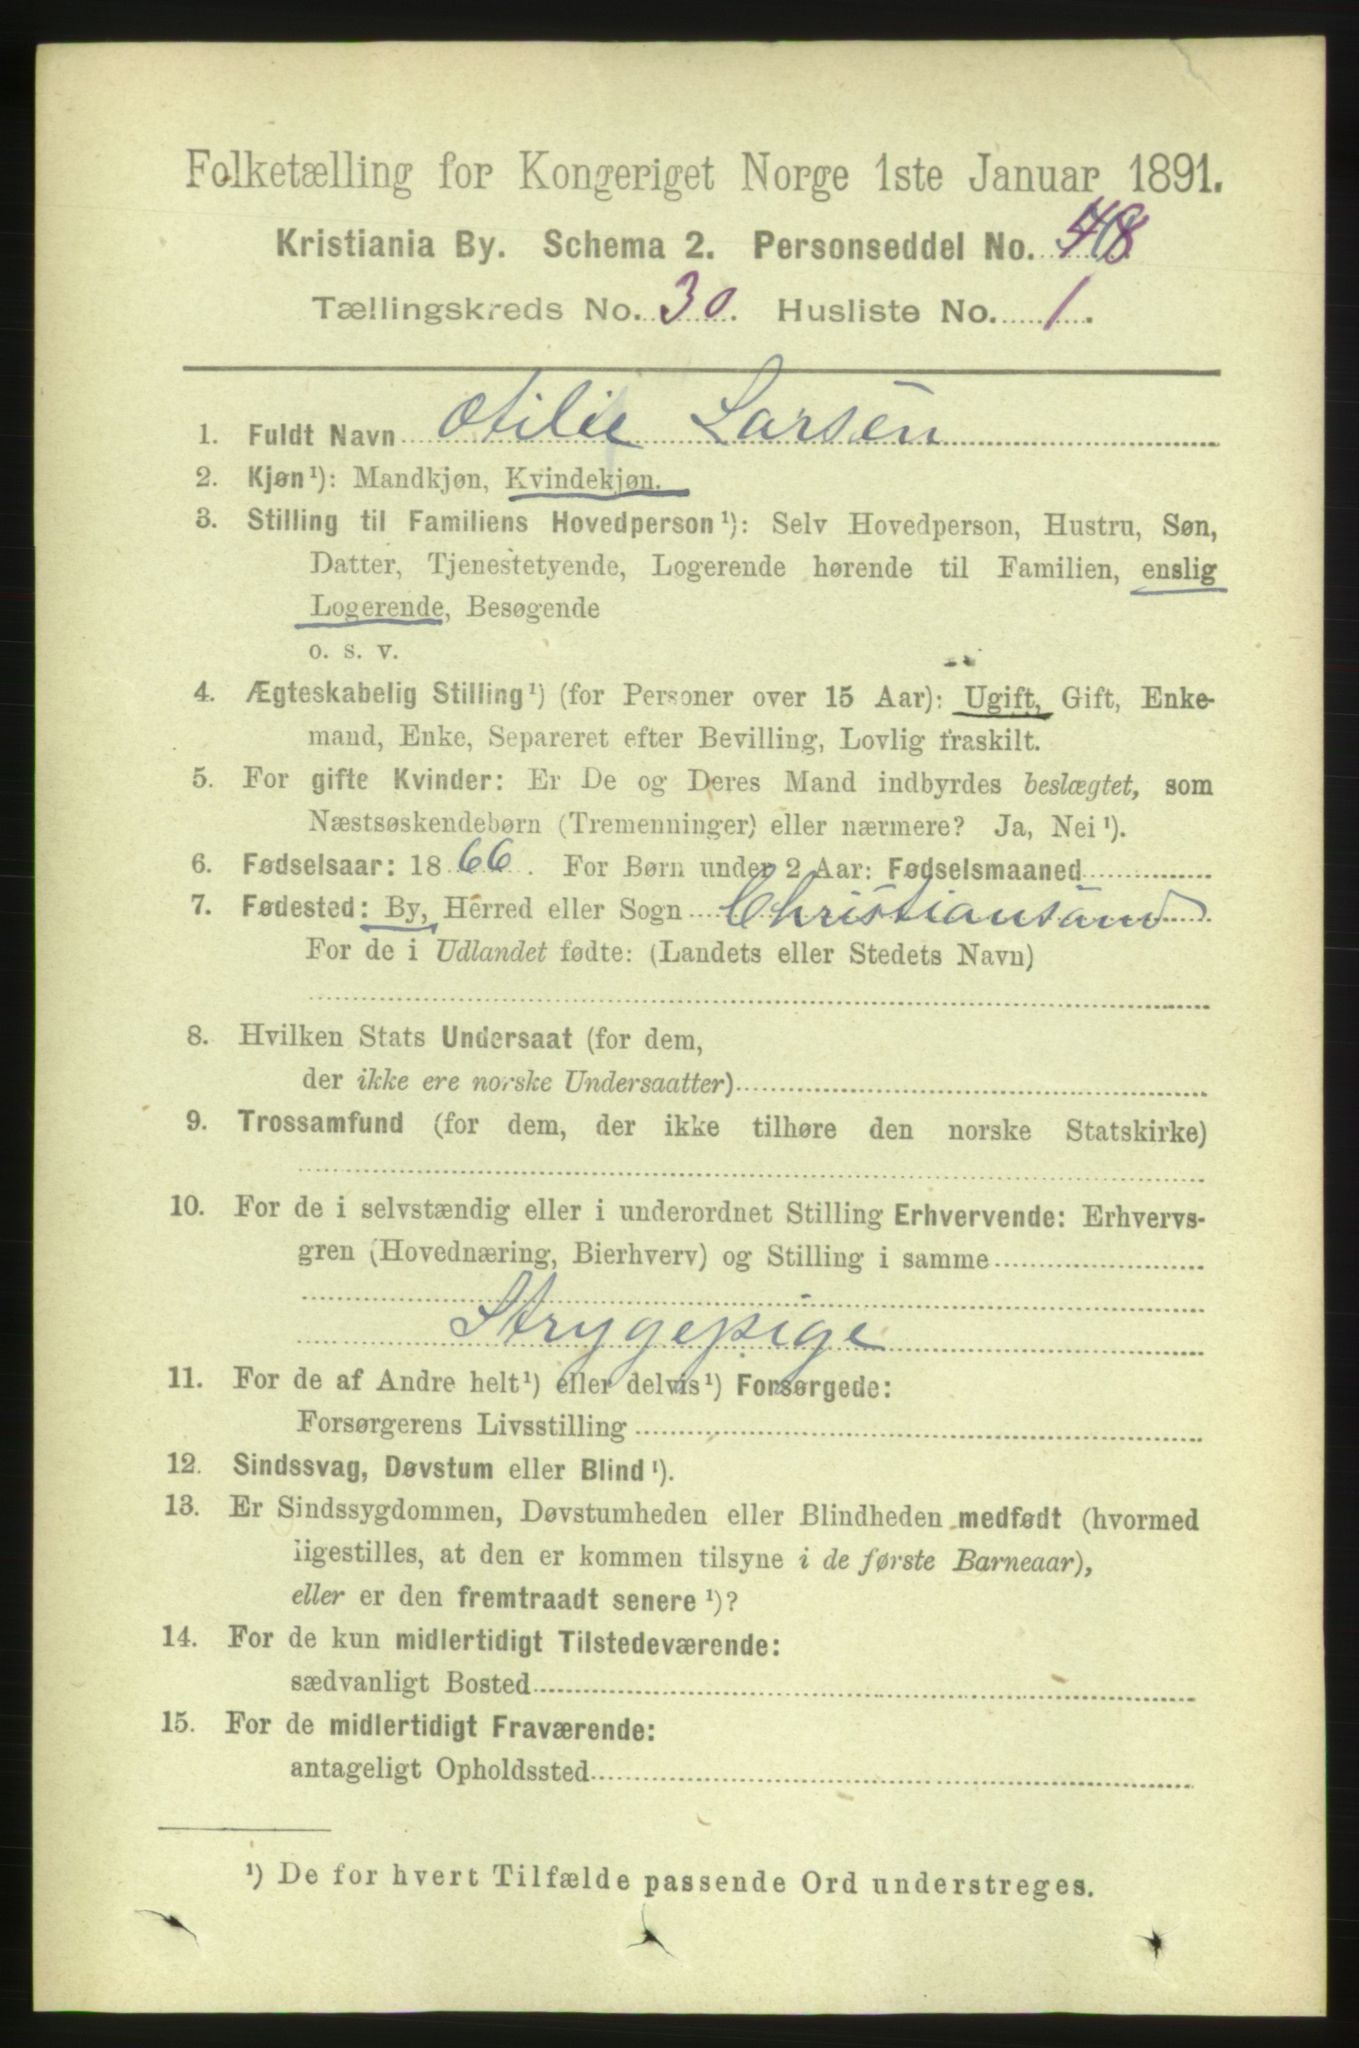 Folketælling for Kongeriget Norge 1ste Januar 1891.
Kristiania By. Schema 2. Personseddel No.
Tællingskreds No. 30. Husliste No. 1.
1. Fuldt Navn Otilie Larsen
2. Kjøn¹): Mandkjøn, Kvindekjøn.
3. Stilling til Familiens Hovedperson¹): Selv Hovedperson, Hustru, Søn,
Datter, Tjenestetyende, Logerende hørende til Familien, enslig
Logerende, Besøgende
o. s. v.
4. Ægteskabelig Stilling¹) (for Personer over 15 Aar): Ugift, Gift, Enke-
mand, Enke, Separeret efter Bevilling, Lovlig fraskilt.
5. For gifte Kvinder: Er De og Deres Mand indbyrdes beslægtet, som
Næstsøskendebørn (Tremenninger) eller nærmere? Ja, Nei¹).
6. Fødselsaar: 1866. For Børn under 2 Aar: Fødselsmaaned
7. Fødested: By, Herred eller Sogn Christiansand
For de i Udlandet fødte: (Landets eller Stedets Navn)
8. Hvilken Stats Undersaat (for dem,
der ikke ere norske Undersaatter)
9. Trossamfund (for dem, der ikke tilhøre den norske Statskirke)
10. For de i selvstændig eller i underordnet Stilling Erhvervende: Erhvervs-
gren (Hovednæring, Bierhverv) og Stilling i samme
Strygepige
11. For de af Andre helt¹) eller delvis¹) Forsørgede:
Forsørgerens Livsstilling
12. Sindssvag, Døvstum eller Blind¹).
13. Er Sindssygdommen, Døvstumheden eller Blindheden medfødt (hvormed
ligestilles, at den er kommen tilsyne i de første Barneaar),
eller er den fremtraadt senere¹)?
14. For de kun midlertidigt Tilstedeværende:
sædvanligt Bosted
15. For de midlertidigt Fraværende:
antageligt Opholdssted
¹) De for hvert Tilfælde passende Ord understreges.